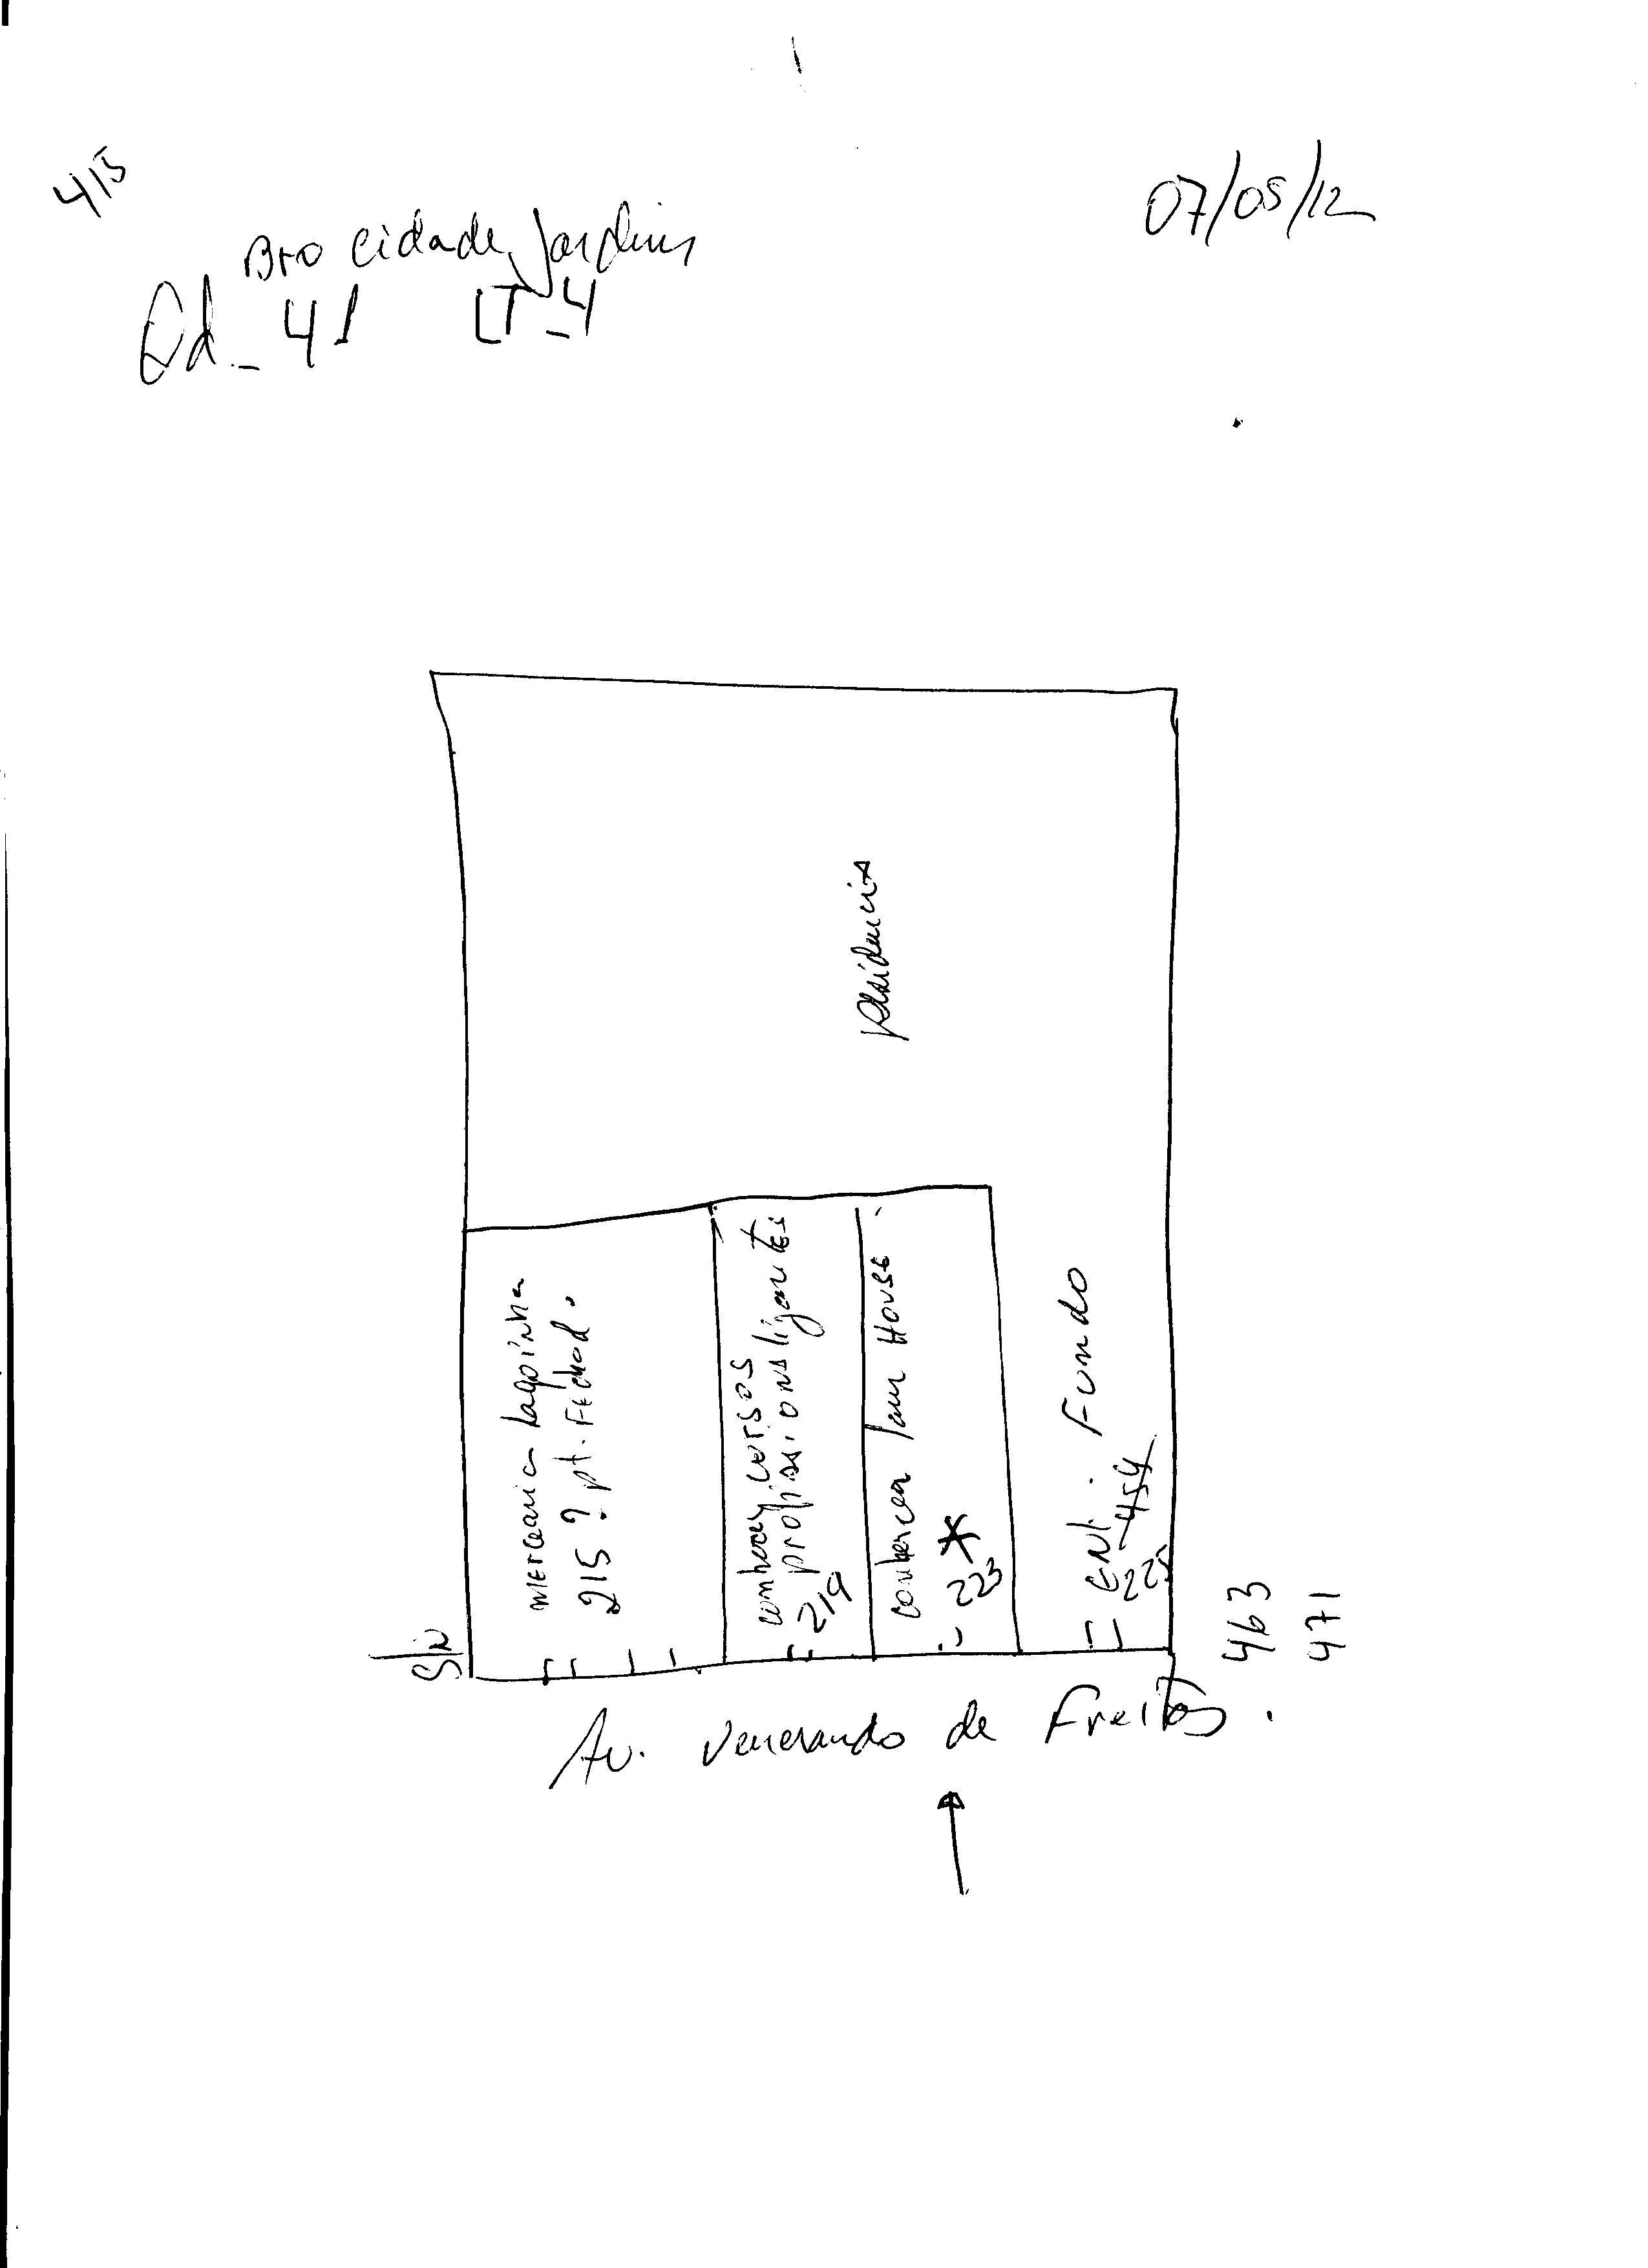 415
07/05/12
Bro cidade Jardins
Qd_41 LT_4
Residencia
mercearia Lagoinha
215 ? pt. Fechad.
cursos
profissionaligantes
219
Lan House
* 223
Ent. Fundo
454
225
S/N
463
471
Av. Venerando de Freitas.